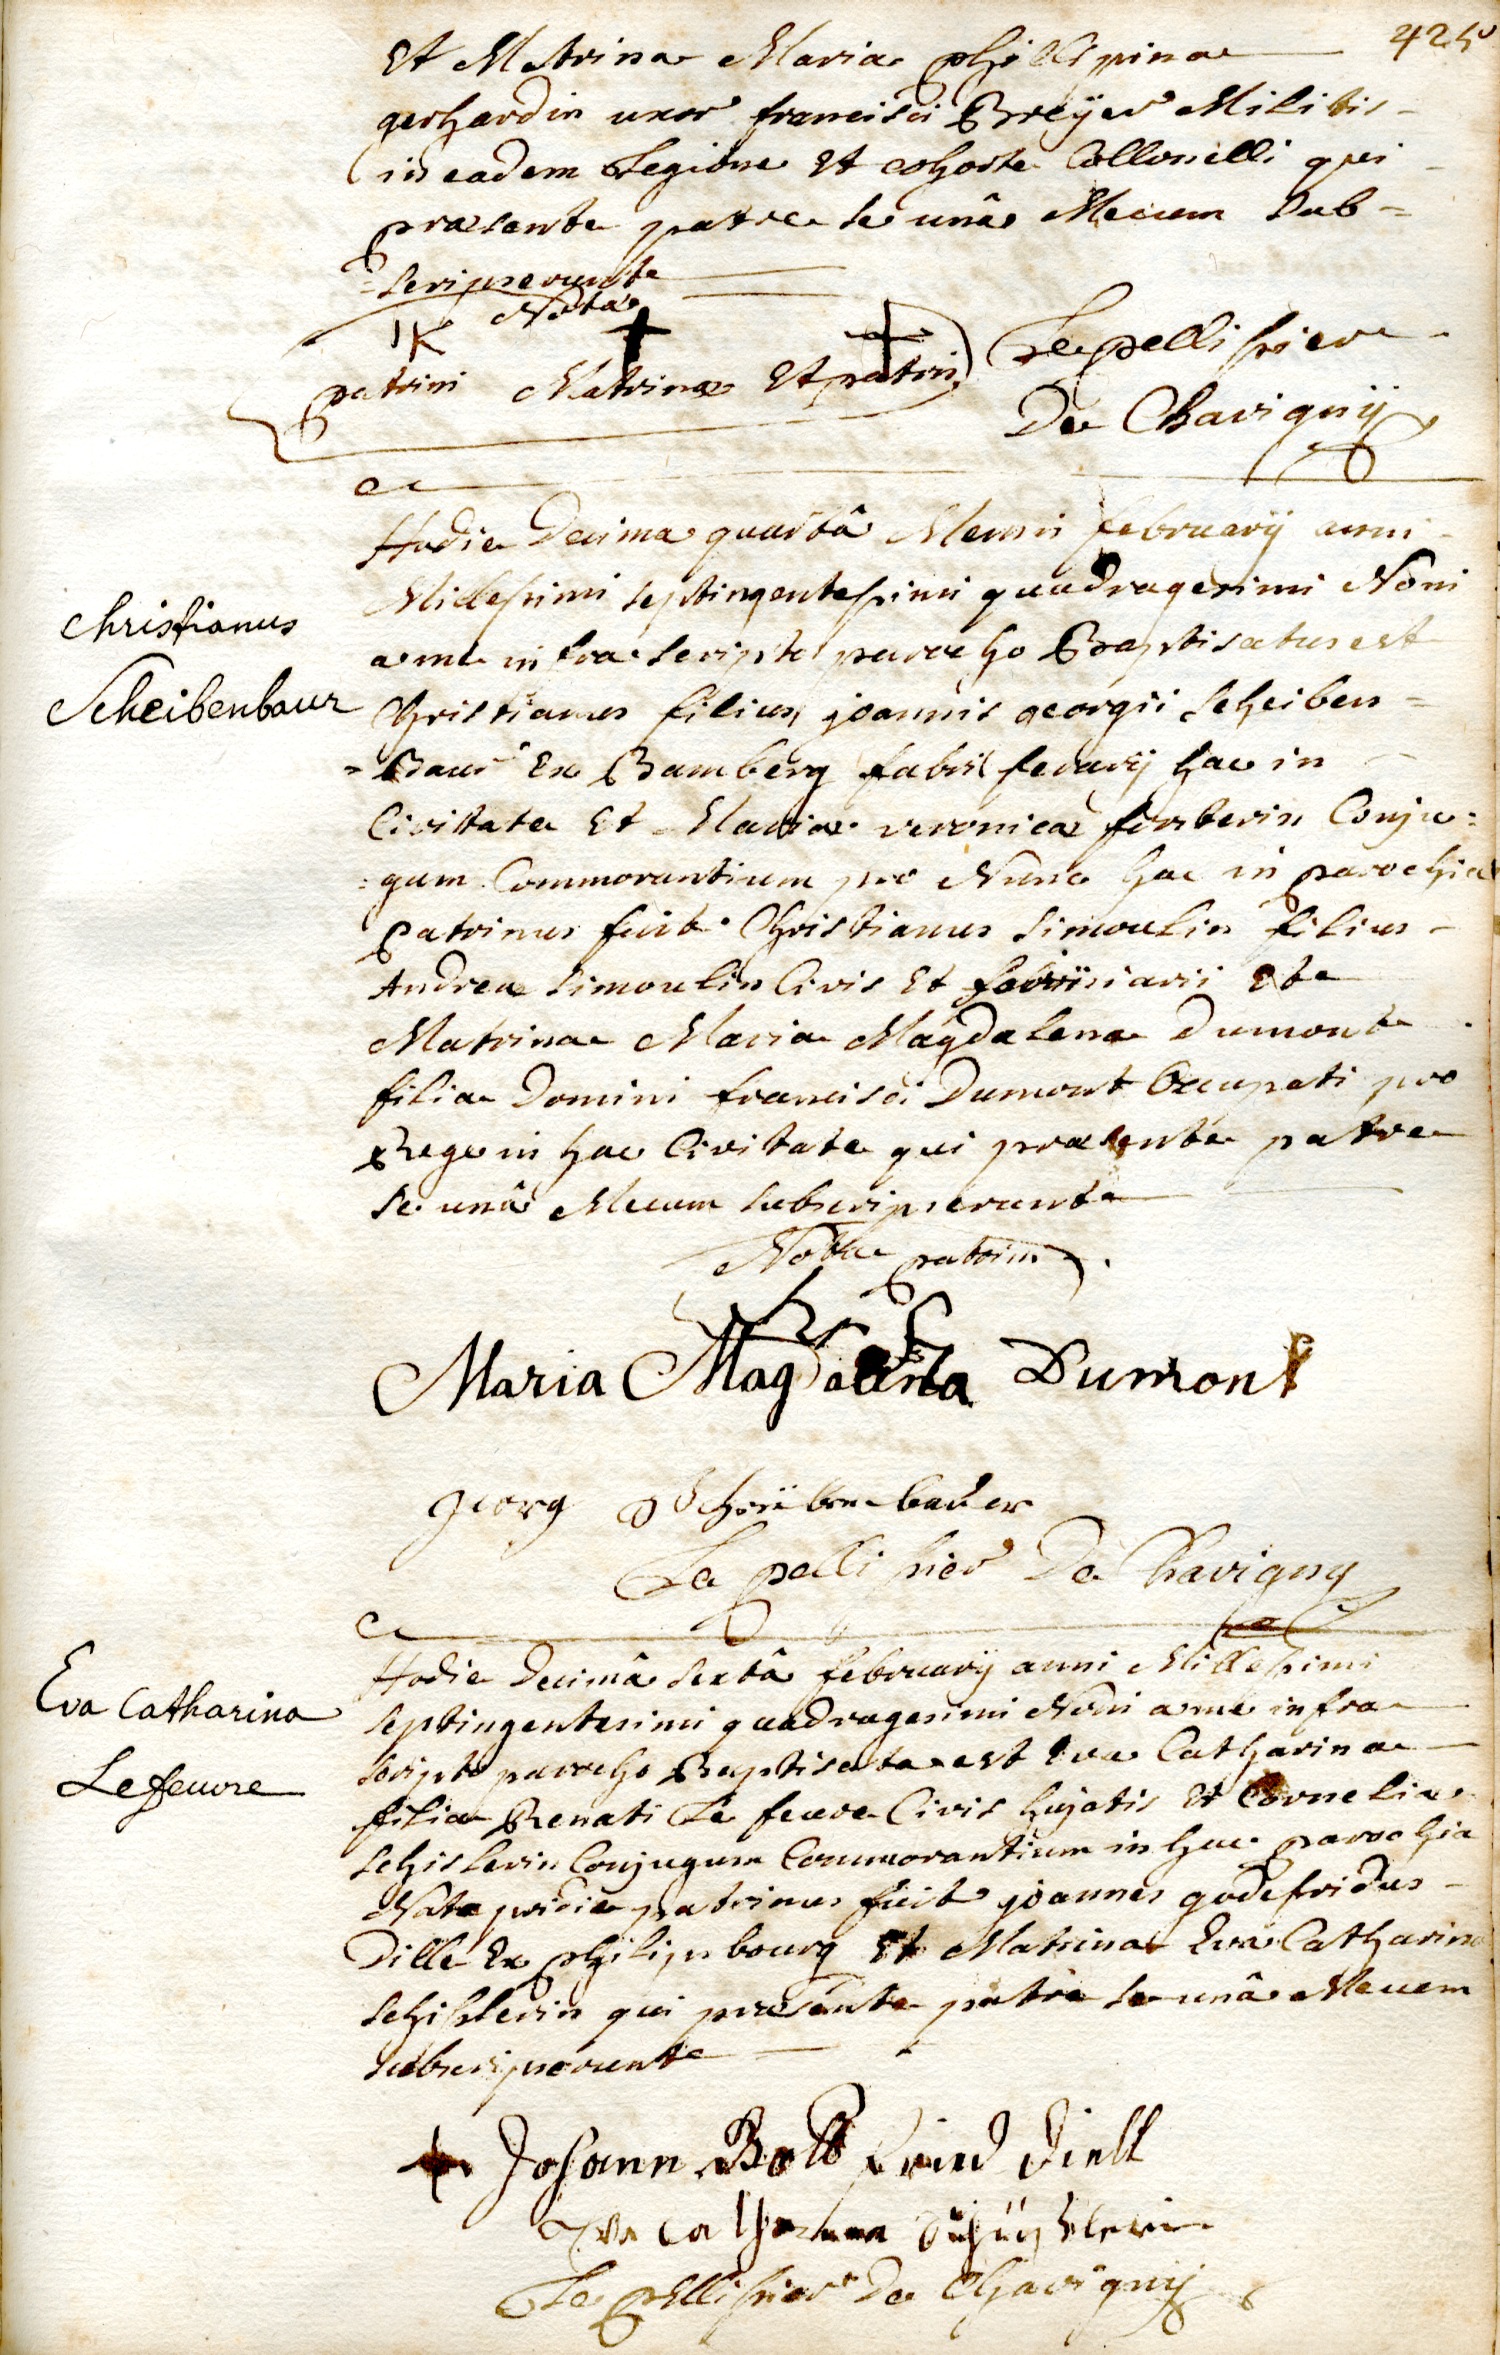 Et Matrina Maria phillipina
gerhardin uxor francisci Breÿer Militis
in eadem Legione Et cohorte Collonelli qui
præsente patre se unâ Mecum Sub=
=scripserunt
Nota
IK
patrini Matrinæ Et patris
Le pellissier
De Chavignÿ
Hodie Decima quartâ Mensis februarÿ anni
Millesimi septingentesimi quadragesimi Noni
a me infra scripto parocho Baptisatus est
Christianus
Scheibenbaur
Christianus filius joannis georgii Scheiben=
=Baur Ex Bamberg fabri ferarÿ hac in
Civitate Et Mariæ veronicæ forsterin Conju=
=gum Commorantium pro Nunc hac in parochia
patrinus fuit Christianus Simoulin filius
Andreæ Simoulin Civis Et Et
Matrina Maria Magdalena Dumont
filia Domini francisci Dumont Occupati pro
Rege in hac Civitate qui præsente patre
se unâ Mecum subscripserunt
Nota patrini
Maria Magdalena Dumont
georg Scheibenbauer
Le pellissier De Chavigny
Hodie Decimâ sextâ februarÿ anni Millesimi
Eva Catharina
Lefeuvre
septingentesimi quadragesimi Noni a me infra
scripto parocho Baptisata est Eva Catharina
filia Renati Le feuvre Civis hujatis Et Corneliæ
Schislerin Conjugum Commorantium in hac parochia
Nata pridie patrinus fuit joannes godefridus
Dille Ex philipsbourg Et Matrina Eva Catharina
Schislerin qui præsente patre se unâ Mecum
subscripserunt
Johann Gottfried Diell
Eva Catharina
Le pellissier De Chavignÿ